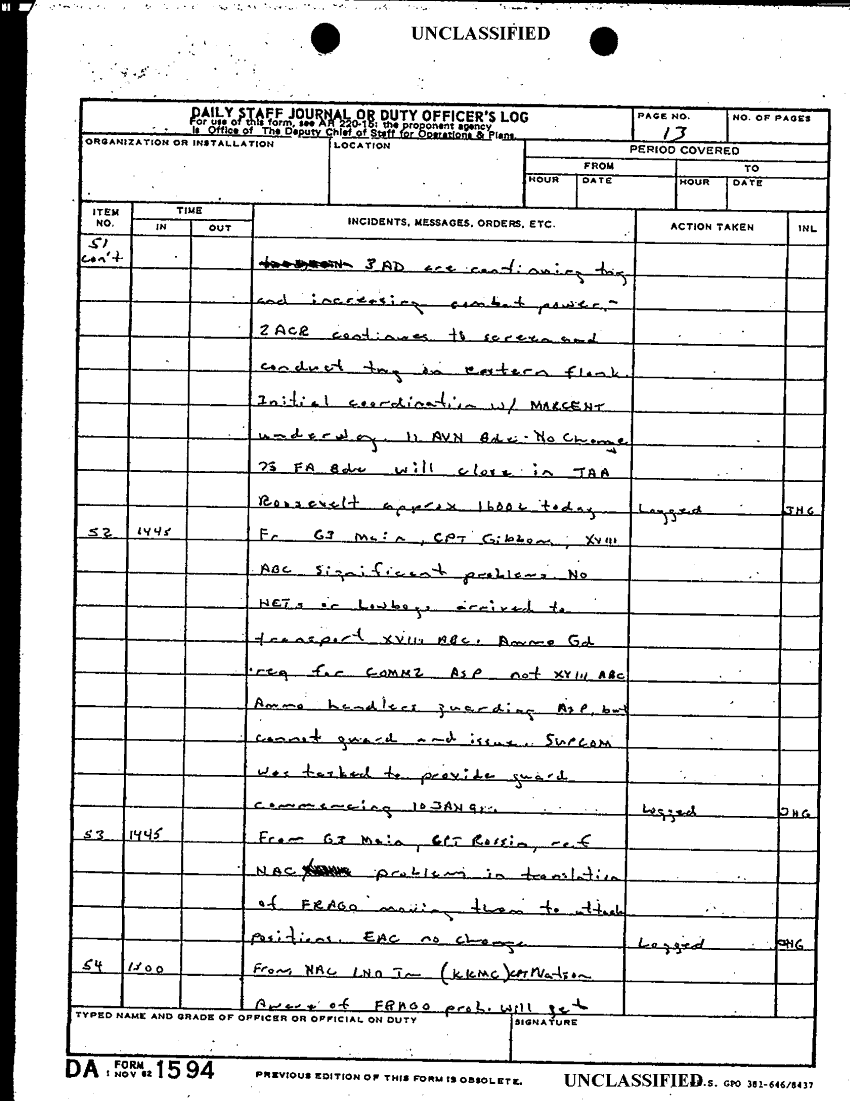 UNCLASSIFIED
DAILY STAFF JOURNAL OR DUTY OFFICER'S LOG
For use of this form, see AR 220-15; the proponent agency
is Office of The Deputy Chief of Staff for Operations & Plans.
PAGE NO.
13
NO. OF PAGES
ORGANIZATION OR INSTALLATION
LOCATION
PERIOD COVERED
FROM
TO
HOUR
DATE
HOUR
DATE
ITEM NO.
TIME
IN
OUT
INCIDENTS, MESSAGES, ORDERS, ETC.
ACTION TAKEN
INL
51
con't
3 AD are continuing tng
and increasing combat power.
2 ACR continues to screen and
conduct tng in eastern flank.
Initial coordination w/ MARCENT
underway. 11 AVN Bde - No Change
75 FA Bde will close in TAA
Roosevelt approx 1600z today Logged JHG
52 1445 Fr G3 Main, CPT Gibbons, XVIII
ABC significant problems. No
HETs or Lowboys arrived to
transport XVIII ABC. Ammo Gd
req for COMMZ ASP not XVIII ABC
Ammo handlers guarding ASP, but
cannot guard and issue. SUPCOM
was tasked to provide guard
commencing 10 JAN 91. Logged JHG
53 1445 From G3 Main, CPT Rossin, ref
NAC problems in translation
of FRAGO moving them to attack
positions. EAC no change Logged JHG
54 1500 From NAC LNO Tm (KKMC) CPT Watson
Aware of FRAGO prob. will get
TYPED NAME AND GRADE OF OFFICER OR OFFICIAL ON DUTY
SIGNATURE
DA FORM 1 NOV 62 1594
PREVIOUS EDITION OF THIS FORM IS OBSOLETE.
UNCLASSIFIED
U.S. GPO 382-646/8437